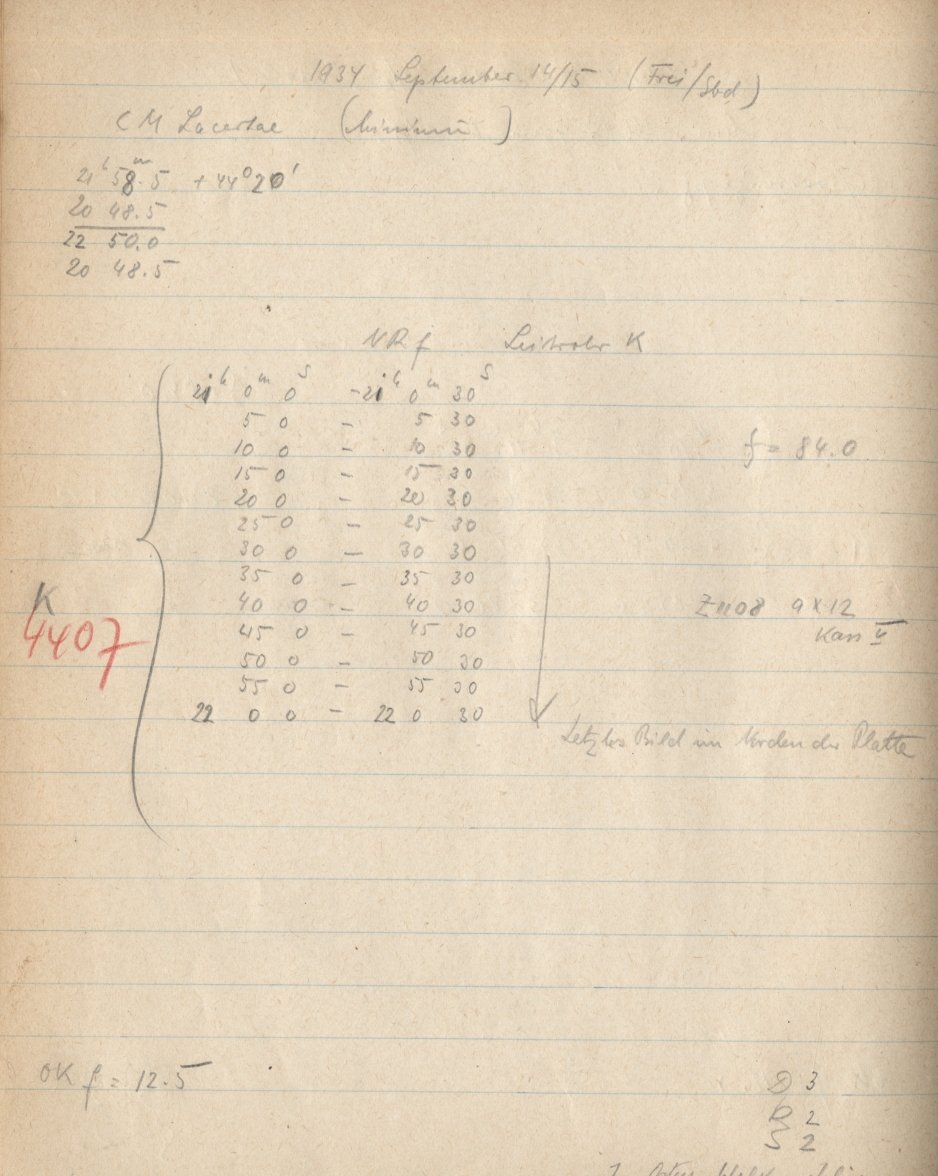 1934 September 14/15 (Frei/Sbd)
CM Lacertae (Minimum)
21h 58m.5 +44°20'
20 48.5
22 50.0
20 48.5
NRf Leitrohr K
21h 0m 0s - 21h 0m 30s
5 0 - 5 30
10 0 - 10 30
f = 84.0
15 0 - 15 30
20 0 - 20 30
25 0 - 25 30
30 0 - 30 30
35 0 - 35 30
K
40 0 - 40 30
Z1108 9x12
4407
45 0 - 45 30
Kass II
50 0 - 50 30
55 0 - 55 30
22 0 0 - 22 0 30
Letztes Bild im Norden der Platte
OK f = 12.5
D 3
R 2
S 2